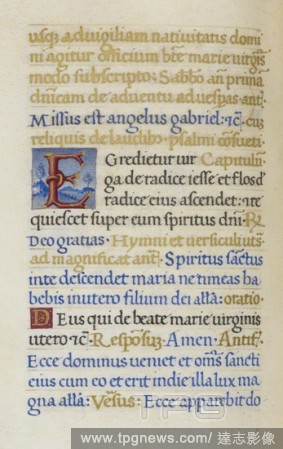 usq3 ad vigiliam nativitatis domi
ni agitur officium bte marie virgis
modo subscripto: Sabbo an prima
dnicam de adventu ad vespas ant.
Missus est angelus gabriel: 1c. cu3
reliquis de laudib3. psalmi cosueti.
E Gredietur vir Capitulu.
ga de radice iesse et flos d
radice eius ascendet: et re
quiescet super eum spiritus dni. R
Deo gratias. Hymni et versiculi uts.
ad magnificat ant. Spiritus sactus
in te descendet maria ne timeas ha
bebis in utero filium dei alla: oratio.
D Eus qui de beate marie virginis
utero: 1c. Resposu3. Amen. Antif.
Ecce dominus veniet et oms sancti
eius cum eo et erit in die illa lux ma
gna alla: Vesus: Ecce apparebit do
TPG
www.tpgnews.com/達志影像